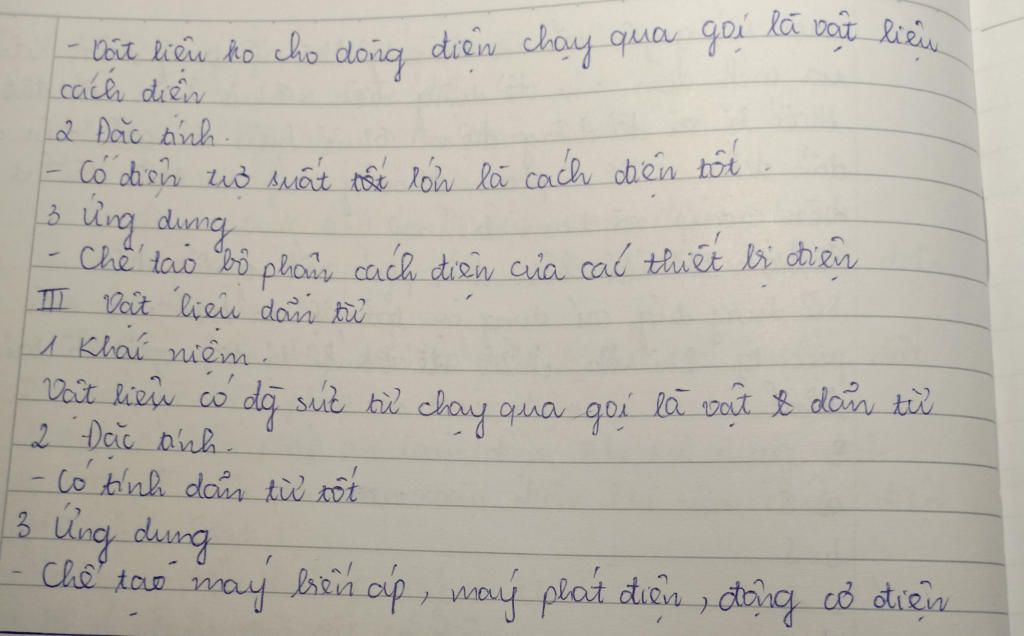 - Vật liệu ko cho dòng điện chạy qua gọi là vật liệu
cách điện
2 Đặc tính.
- Có điện trở suất tốt lớn là cách điện tốt.
3 Ứng dụng
- Chế tạo bộ phận cách điện của các thiết bị điện
III Vật liệu dẫn từ
1 Khái niệm.
Vật liệu có đg sức từ chạy qua gọi là vật dẫn từ
2 Đặc tính.
- Có tính dẫn từ tốt
3 Ứng dụng
- Chế tạo máy biến áp, máy phát điện, động cơ điện